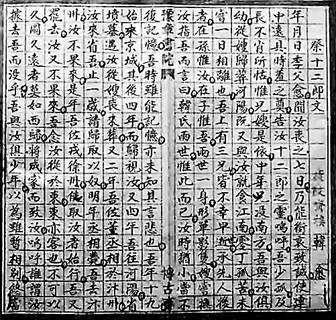 祭十二郎文 韓愈
年月日季父愈聞汝喪之七日乃能銜哀致誠使建
中遠具時羞之奠告汝十二郎之靈嗚呼吾少孤及
長不省所怙惟兄嫂是依中年兄歿南方吾與汝俱
幼從嫂歸葬河陽既又與汝就食江南零丁孤苦未
嘗一日相離也吾上有三兄皆不幸早世承先人後
者在孫惟汝在子惟吾兩世一身形單影隻嫂嘗撫
汝指吾而言曰韓氏兩世惟此而已汝時尤小當不
豫章書院 博古齋
復記憶吾時雖能記憶亦未知其言悲也吾年十九
始來京城其後四年而歸視汝又四年吾往河陽省
墳墓遇汝從嫂喪來葬又二年吾佐董丞相於汴州
汝來省吾止一歲請歸取以孥明年丞相薨吾去汴
州汝不果來是年吾佐戎徐州使取汝者始行吾又
罷去汝又不果來吾念汝從於東東亦客也不可以
久圖久遠者莫如西歸將成家而致汝嗚呼孰謂汝
遽去吾而歿乎吾與汝俱少年以為雖暫相別終當